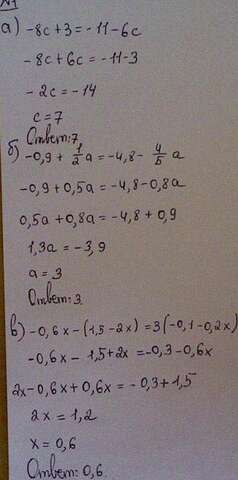 №1
а) -8c+3=-11-6c
-8c+6c=-11-3
-2c=-14
c=7
Ответ:7.
б) -0,9+1/2a=-4,8-4/5a
-0,9+0,5a=-4,8-0,8a
0,5a+0,8a=-4,8+0,9
1,3a=-3,9
a=3
Ответ:3.
в) -0,6x-(1,5-2x)=3(-0,1-0,2x)
-0,6x-1,5+2x=-0,3-0,6x
2x-0,6x+0,6x=-0,3+1,5
2x=1,2
x=0,6
Ответ:0,6.